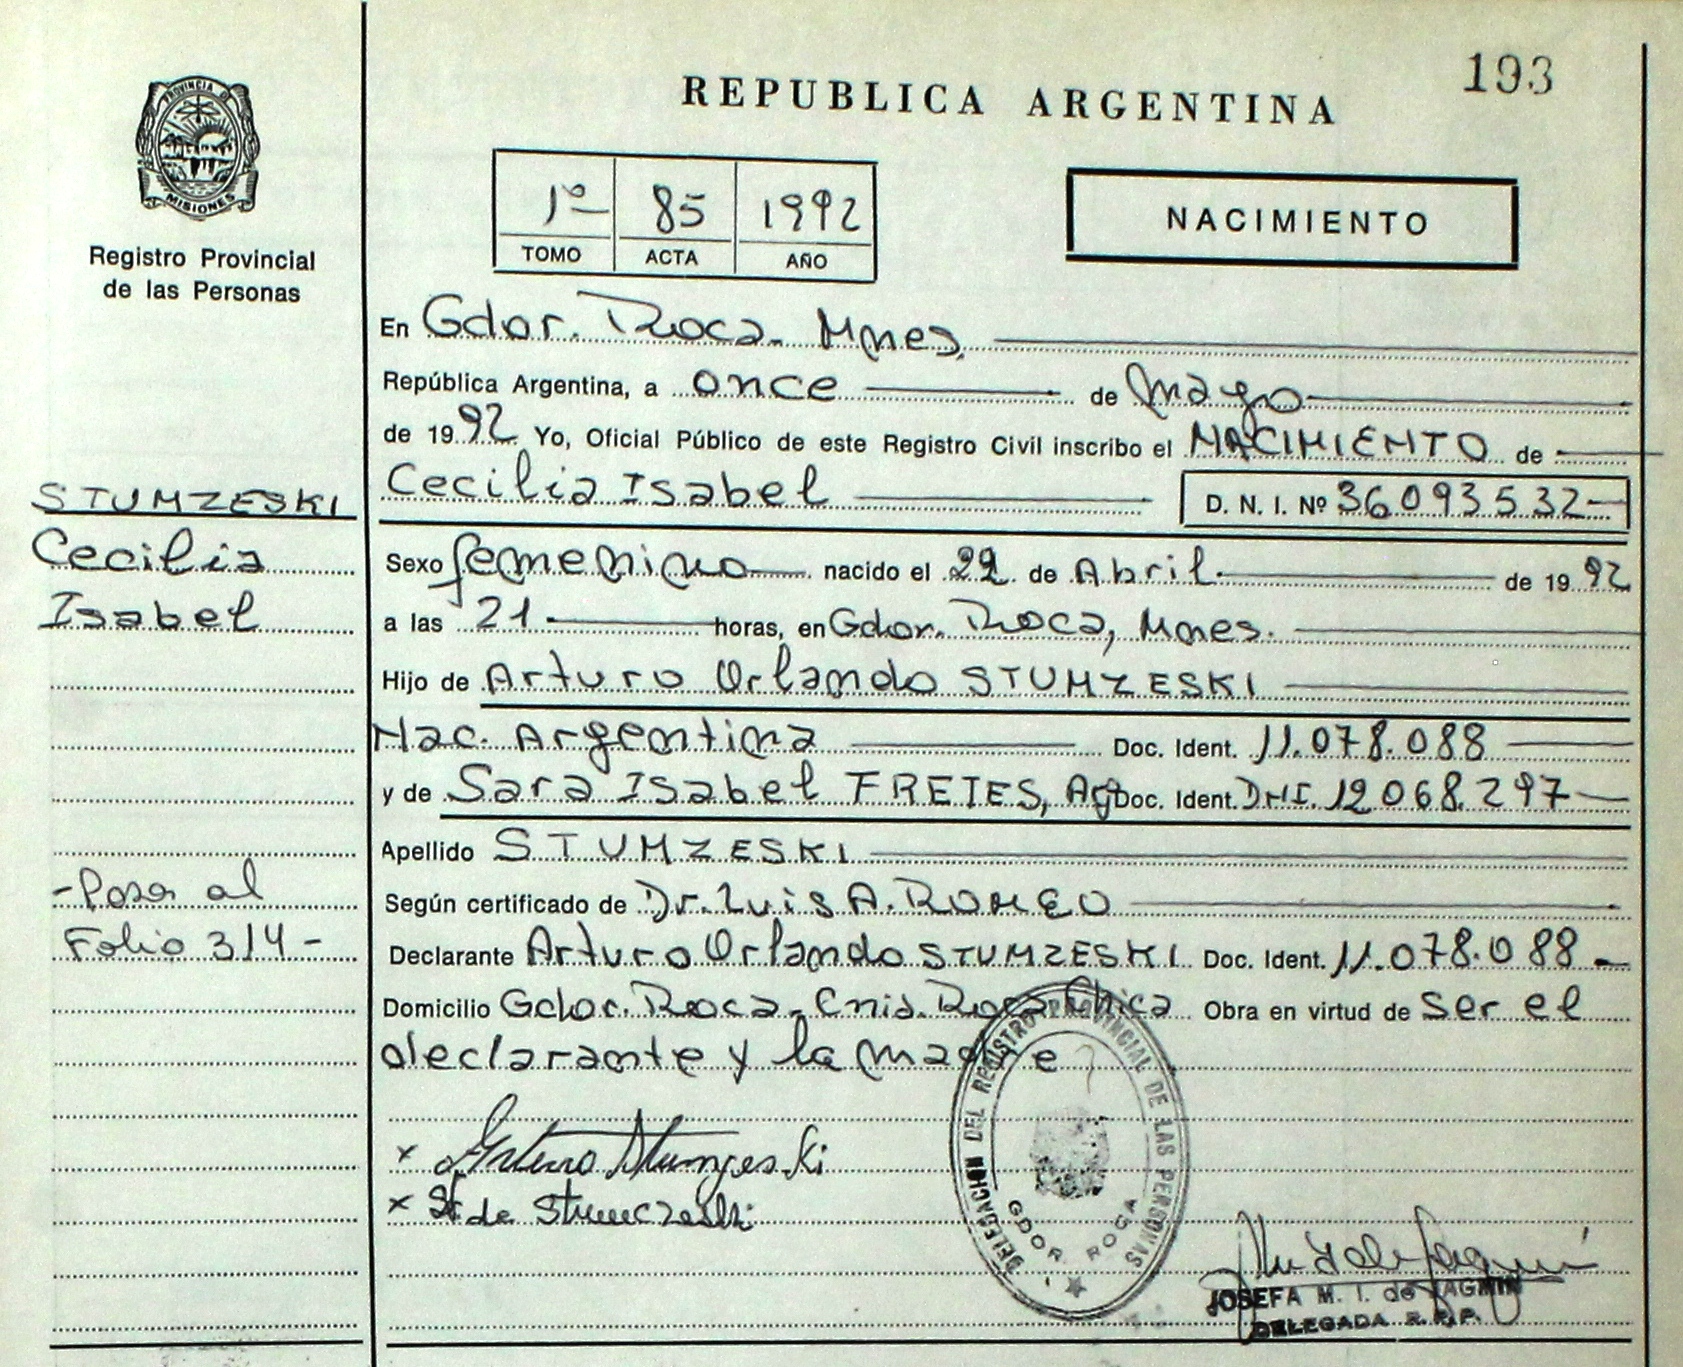 193
REPUBLICA ARGENTINA
PROVINCIA DE
MISIONES
Registro Provincial
de las Personas
1º 85 1992
TOMO ACTA AÑO
NACIMIENTO
En Gdor. Roca. Mnes,
República Argentina, a once de mayo
de 1992 Yo, Oficial Público de este Registro Civil inscribo el NACIMIENTO de
Cecilia Isabel D. N. I. Nº 36093532
STUMZESKI
Cecilia
Isabel
Sexo femenino nacido el 22 de Abril de 1992
a las 21 horas, en Gdor. Roca, Mnes.
Hijo de Arturo Orlando STUMZESKI
Nac. Argentina Doc. Ident. 11.078.088
y de Sara Isabel FRETES, Arg Doc. Ident. DNI. 12068.297
Apellido STUMZESKI
-Pasa al
Folio 314-
Según certificado de Dr. Luis A. ROMEO
Declarante Arturo Orlando STUMZESKI Doc. Ident. 11.078.088
Domicilio Gdor. Roca. Cnia. Roca Chica Obra en virtud de ser el
declarante y la madre
x Arturo Stumzeski
x de Stumczeski
DELEGACION DEL REGISTRO PROVINCIAL DE LAS PERSONAS
GDOR ROCA
JOSEFA M. I. de
DELEGADA R.P.P.